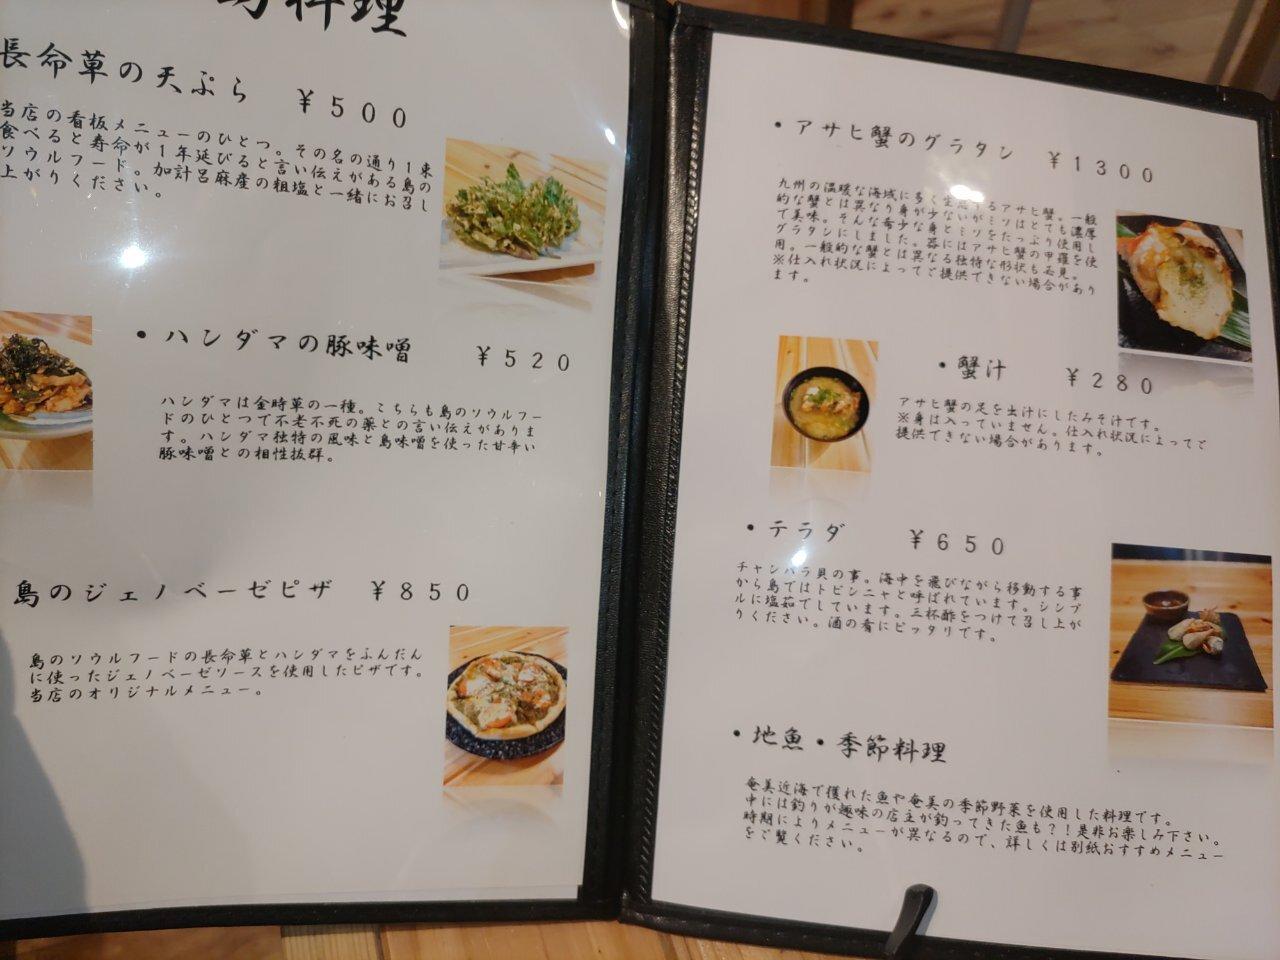 島料理
長命草の天ぷら ￥500
当店の看板メニューのひとつ。その名の通り1束
食べると寿命が1年延びると言い伝えがある島の
ソウルフード。加計呂麻産の粗塩と一緒にお召し
上がりください。
・ハンダマの豚味噌 ￥520
ハンダマは金時草の一種。こちらも島のソウルフー
ドのひとつで不老不死の薬との言い伝えがありま
す。ハンダマ独特の風味と島味噌を使った甘辛い
豚味噌との相性抜群。
島のジェノベーゼピザ ￥850
島のソウルフードの長命草とハンダマをふんだん
に使ったジェノベーゼソースを使用したピザです。
当店のオリジナルメニュー。
・アサヒ蟹のグラタン ￥1300
九州の温暖な海域に多く生息するアサヒ蟹。一般
的な蟹とは異なり身が少ないがミソはとても濃厚
で美味。そんな希少な身とミソをたっぷり使用し
グラタンにしました。器にはアサヒ蟹の甲羅を使
用。一般的な蟹とは異なる独特な形状も必見。
※仕入れ状況によってご提供できない場合があり
ます。
・蟹汁 ￥280
アサヒ蟹の足を出汁にしたみそ汁です。
※身は入っていません。仕入れ状況によってご
提供できない場合があります。
・テラダ ￥650
チャンバラ貝の事。海中を飛びながら移動する事
から島ではトビンニャと呼ばれています。シンプ
ルに塩茹でしています。三杯酢をつけて召し上が
りください。酒の肴にピッタリです。
・地魚・季節料理
奄美近海で獲れた魚や奄美の季節野菜を使用した料理です。
中には釣りが趣味の店主が釣ってきた魚も？！是非お楽しみ下さい。
時期によりメニューが異なるので、詳しくは別紙おすすめメニュー
をご覧ください。